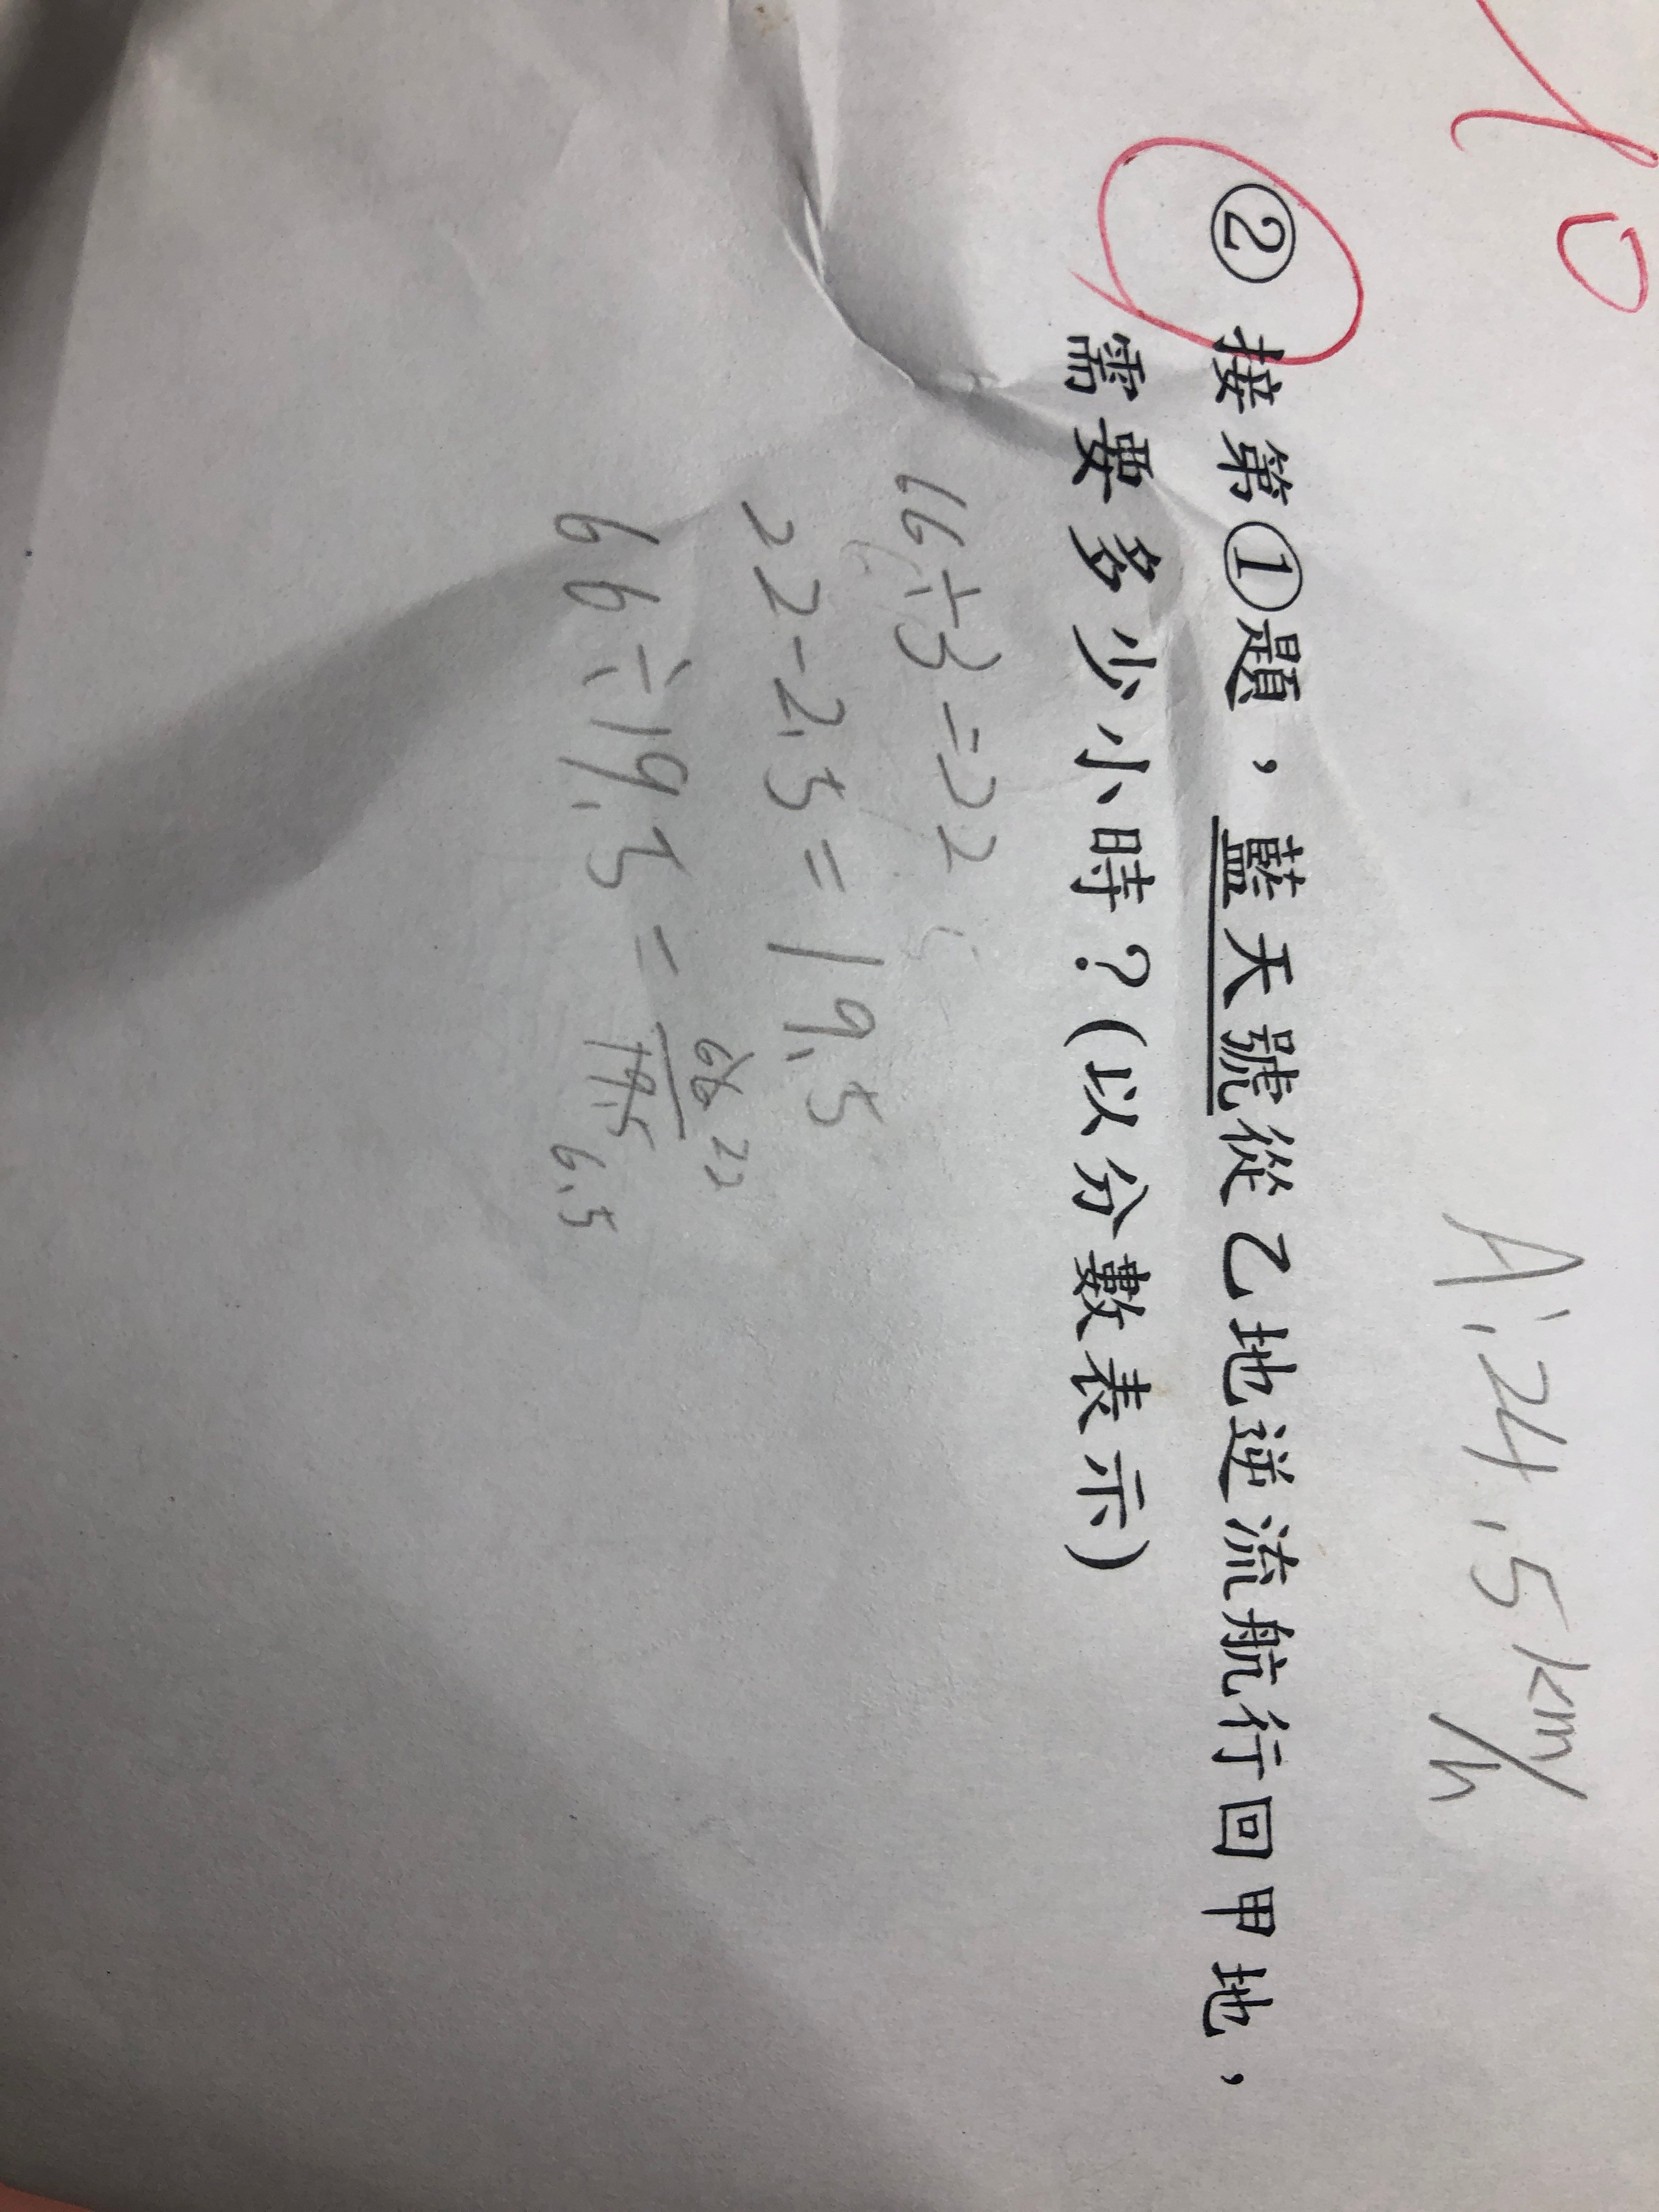 10
A:24.5km/h
② 接第①題，藍天號從乙地逆流航行回甲地，
需要多少小時？(以分數表示)
66÷3=22
22-2.5=19.5
66÷19.5=66/19.5
22
6.5